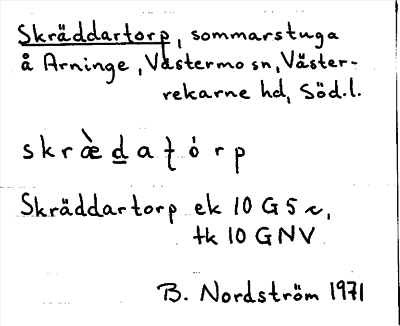 Skräddartorp, sommarstuga
å Arninge, Västermo sn, Väster-
rekarne hd, Söd.l.
skræ̀d̲aʈórp
Skräddartorp ek 10 G 5 c,
tk 10 GNV
B. Nordström 1971